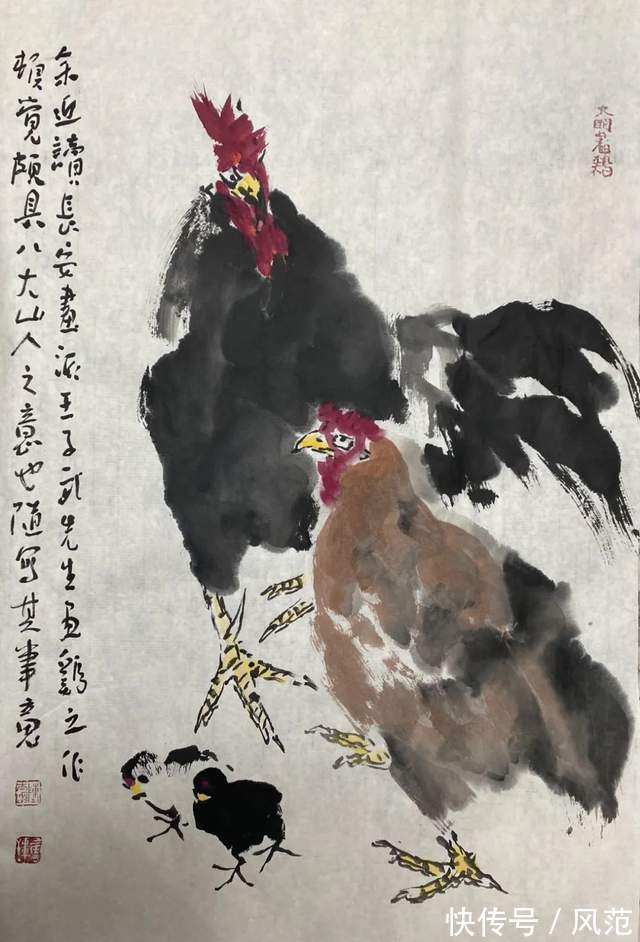 余近讀長安畫派王子武先生画鷄之作
頓覺頗具八大山人之意也隨寫其筆意
快传号／风范